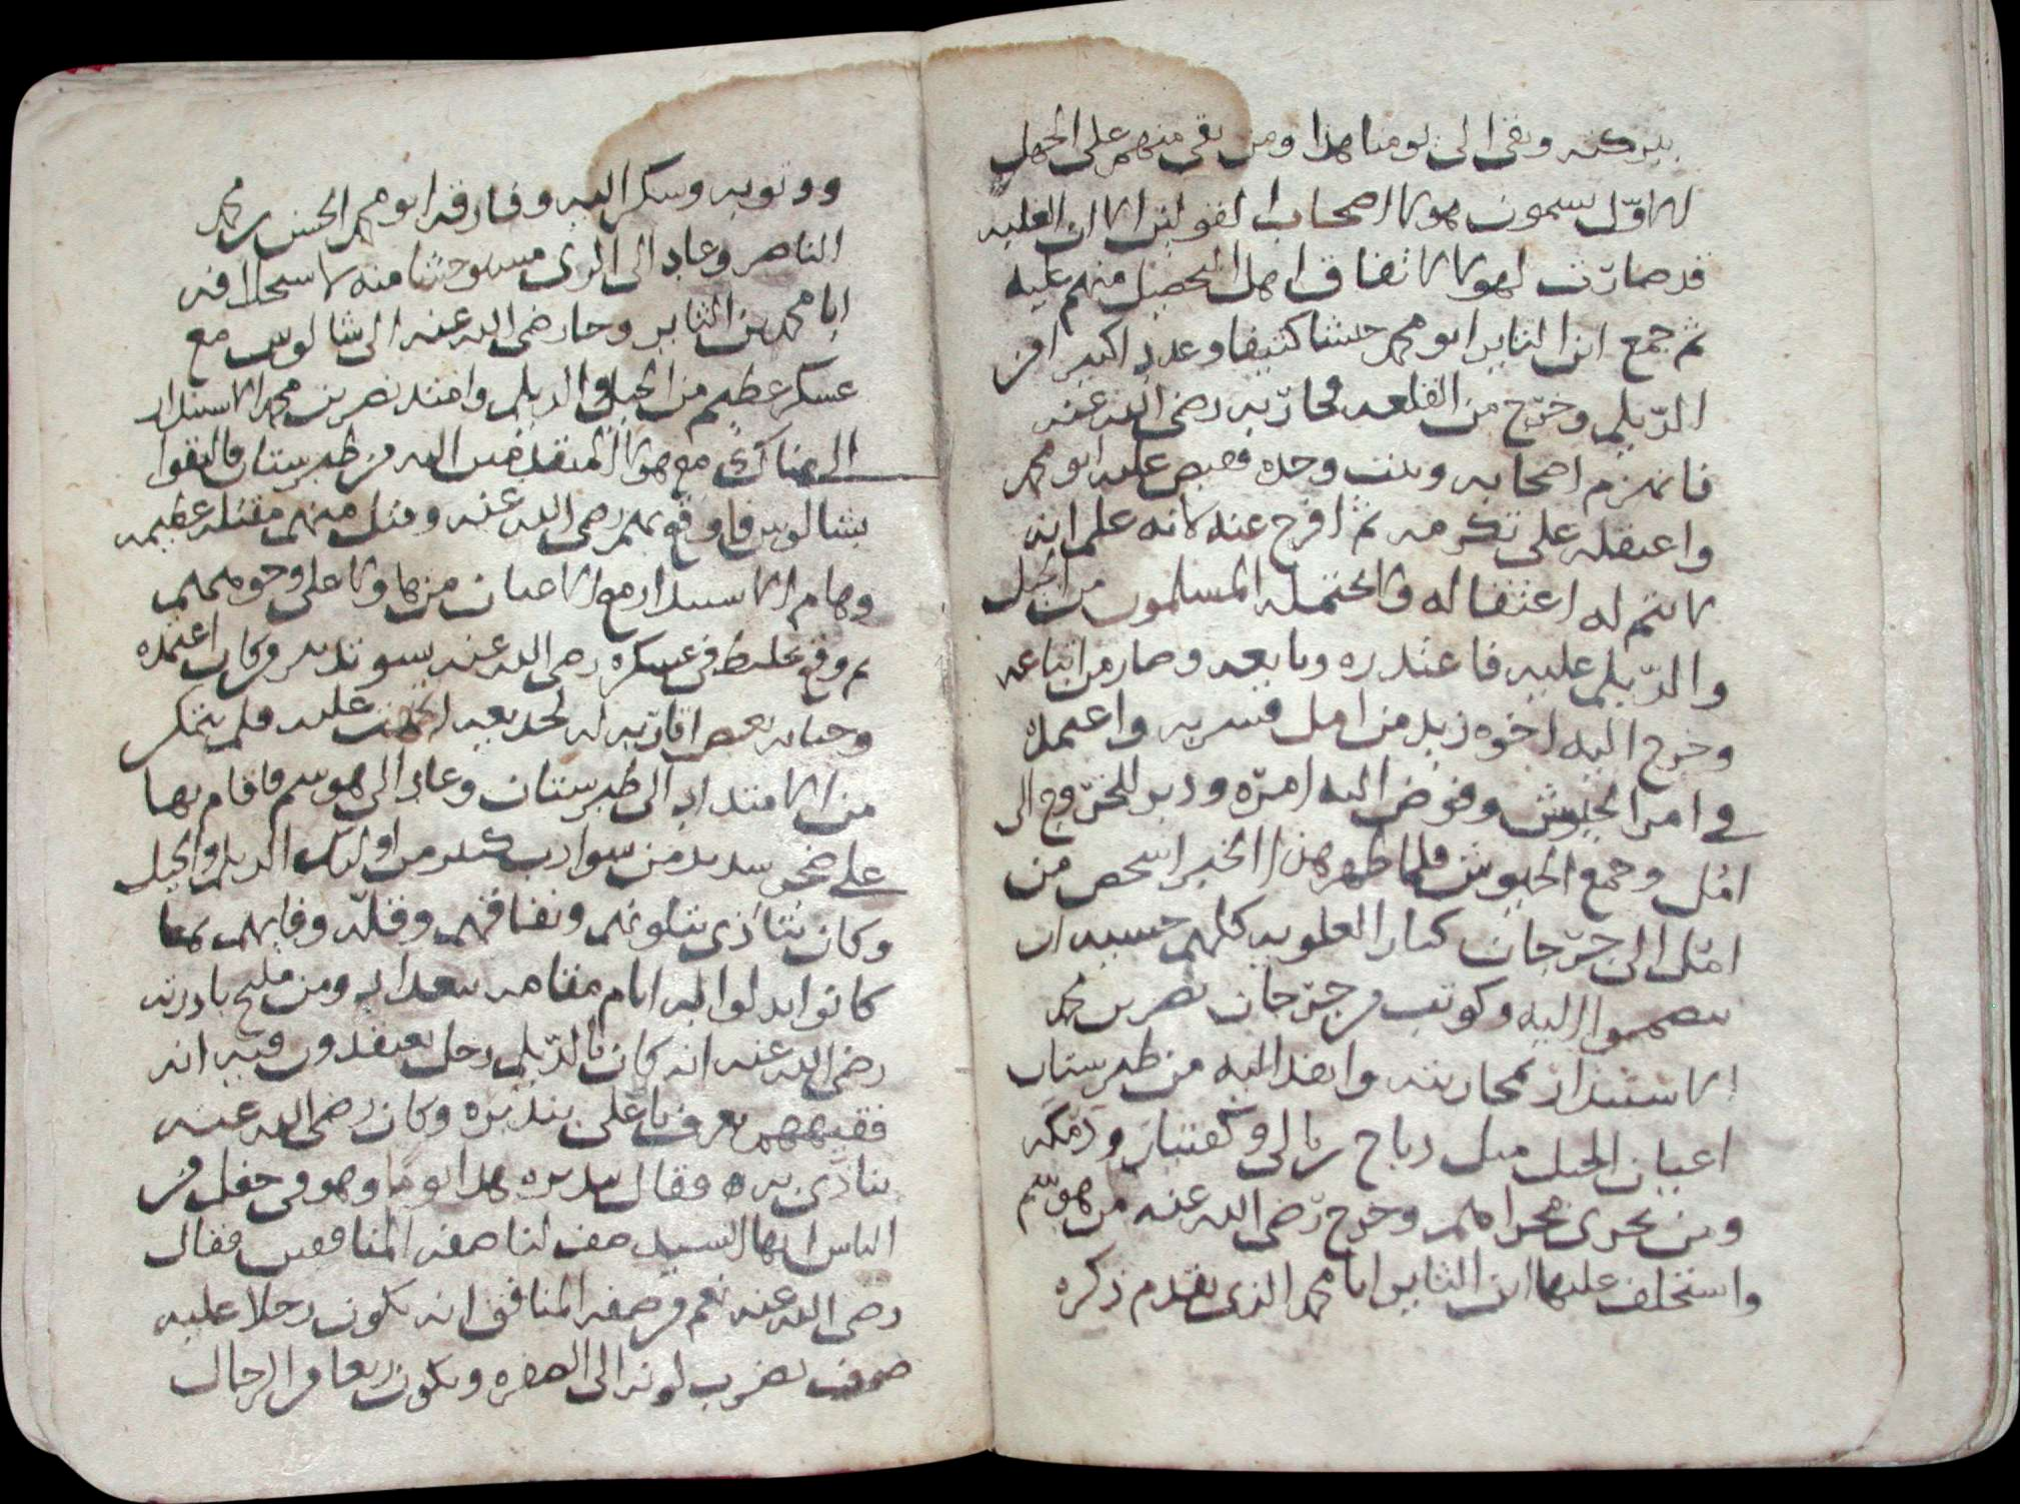 ببركته وبقى الى يومنا هذا ومن بقى منهم على الجهل
الاول يسمون هولا اصحاب القولين الا ان الغلبه
قد صارت لهولا لاتفاق اهل التحصيل منهم عليه
ثم جمع ابن الثاير ابو محمد جيشا كثيفا وعددا كبيرا من
الديلم وخرج من القلعه فحاربه رضى الله عنه
فانهزم اصحابه وثبت وحده فقبض عليه ابو محمد
واعتقله على تكرمه ثم افرج عنه لانه علم انه
لا يتم له اعتقاله ولا يحتمله المسلمون من الجيل
والديلم عليه فاعتذره وبايعه وصار من اتباعه
وخرج اليه اخوه زيد من امل فسر به واعتمده
في امر الجيوش وفوض اليه امره ودبر للخروج الى
امل وجمع الجيوش فلما ظهر هذا الخبر اشخص من
امل الى جرجان كبار العلويه كلهم خشيه ان
ينضموا اليه وكوتب من جرجان نصر بن محمد
الاستندار بمحاربته وانفذ اليه من طبرستان
اعيان الجيل مثل رباح بن بالى وكفتيار ودمكه
ومن يجرى مجراهم وخرج رضى الله عنه من هوسم
واستخلف عليها ابن الثاير ابا محمد الذى تقدم ذكره
ووثق به وسكن اليه وفارقه ابو محمد الحسن بن محمد
الناصر وعاد الى الرى مستوحشا منه لاستخلافه
ابا محمد بن الثاير وجا رضى الله عنه الى شالوس مع
عسكر عظيم من الجيل والديلم وامتد نصر بن محمد الاستندار
الى هناك مع هولا المنفذين اليه من طبرستان فالتقوا
بشالوس فاوقع بهم رضى الله عنه وقتل منهم مقتله عظيمه
وهام الاستندار مع الاعيان منها ولا على وجوههم
ثم وقع تخليط فى عسكره رضى الله عنه بسوء تدبير وكان اعتمده
وخيانه بعض اقاربه له لحديعه تمت عليه فلم يتمكن
من الامتداد الى طبرستان وعاد الى هوسم فاقام بها
على ضجر شديد من سوادب كثير من اوليك الديلم والجيل
وكان يتاذى بتلونهم ونفاقهم وقله وفايهم بما
كانوا بذلوا له ايام مقامه ببغداد ومن مليح نادرته
رضى الله عنه انه كان بالديلم رجل يعتقدون فيه انه
فقيههم يعرف بابى على بندبره وكان رضى الله عنه
يتاذى به فقال بندبره هذا يوما وهو فى حفل من
الناس ايها السيد صف لنا صفه المنافقين فقال
رضى الله عنه نعم من صفه المنافق انه يكون رجلا عليه
صوف يضرب لونه الى الصفره ويكون ربعا من الرجال